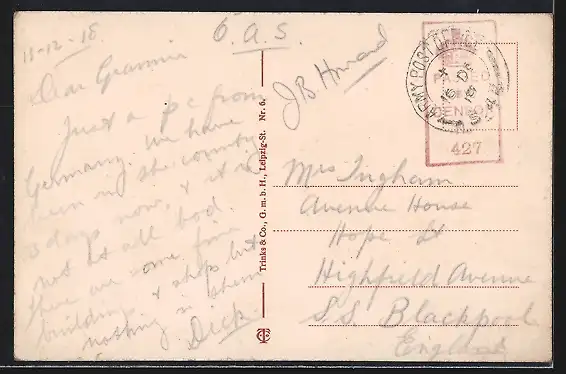 13-12-18
O.A.S.
Dear Grannie
Just a pc from
Germany. We have
been in the country
3 days now, & it is
not at all bad.
There are some fine
buildings & shops but
nothing in them
Dick
Trinks & Co., G. m. b. H., Leipzig-St. Nr. 6.
JB Howard
ARMY POST OFFICE
16 DE
18
PASSED
CENSOR
427
Mrs Ingham
Avenue House
Hope St
Highfield Avenue
S.S. Blackpool
England